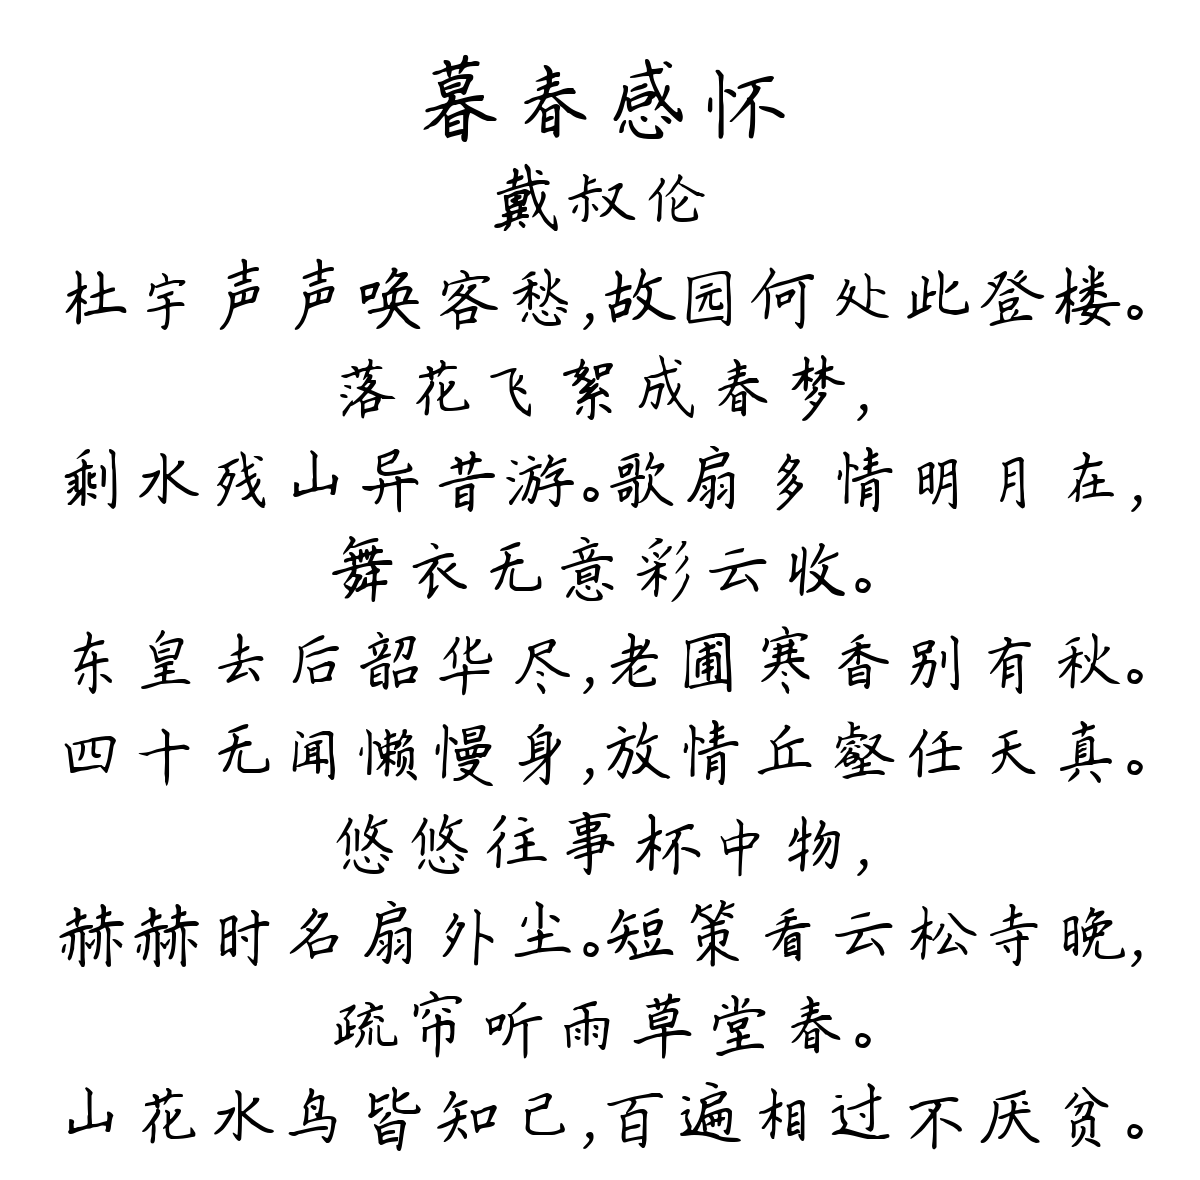 暮春感怀
戴叔伦
杜宇声声唤客愁,故园何处此登楼。
落花飞絮成春梦,
剩水残山异昔游。歌扇多情明月在,
舞衣无意彩云收。
东皇去后韶华尽,老圃寒香别有秋。
四十无闻懒慢身,放情丘壑任天真。
悠悠往事杯中物,
赫赫时名扇外尘。短策看云松寺晚,
疏帘听雨草堂春。
山花水鸟皆知己,百遍相过不厌贫。